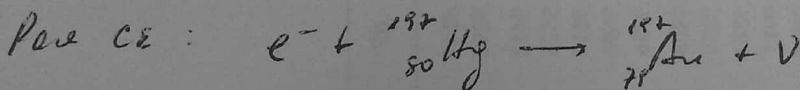 Para CE : e⁻ + ¹⁹⁷₈₀Hg → ¹⁹⁷₇₉Au + ν